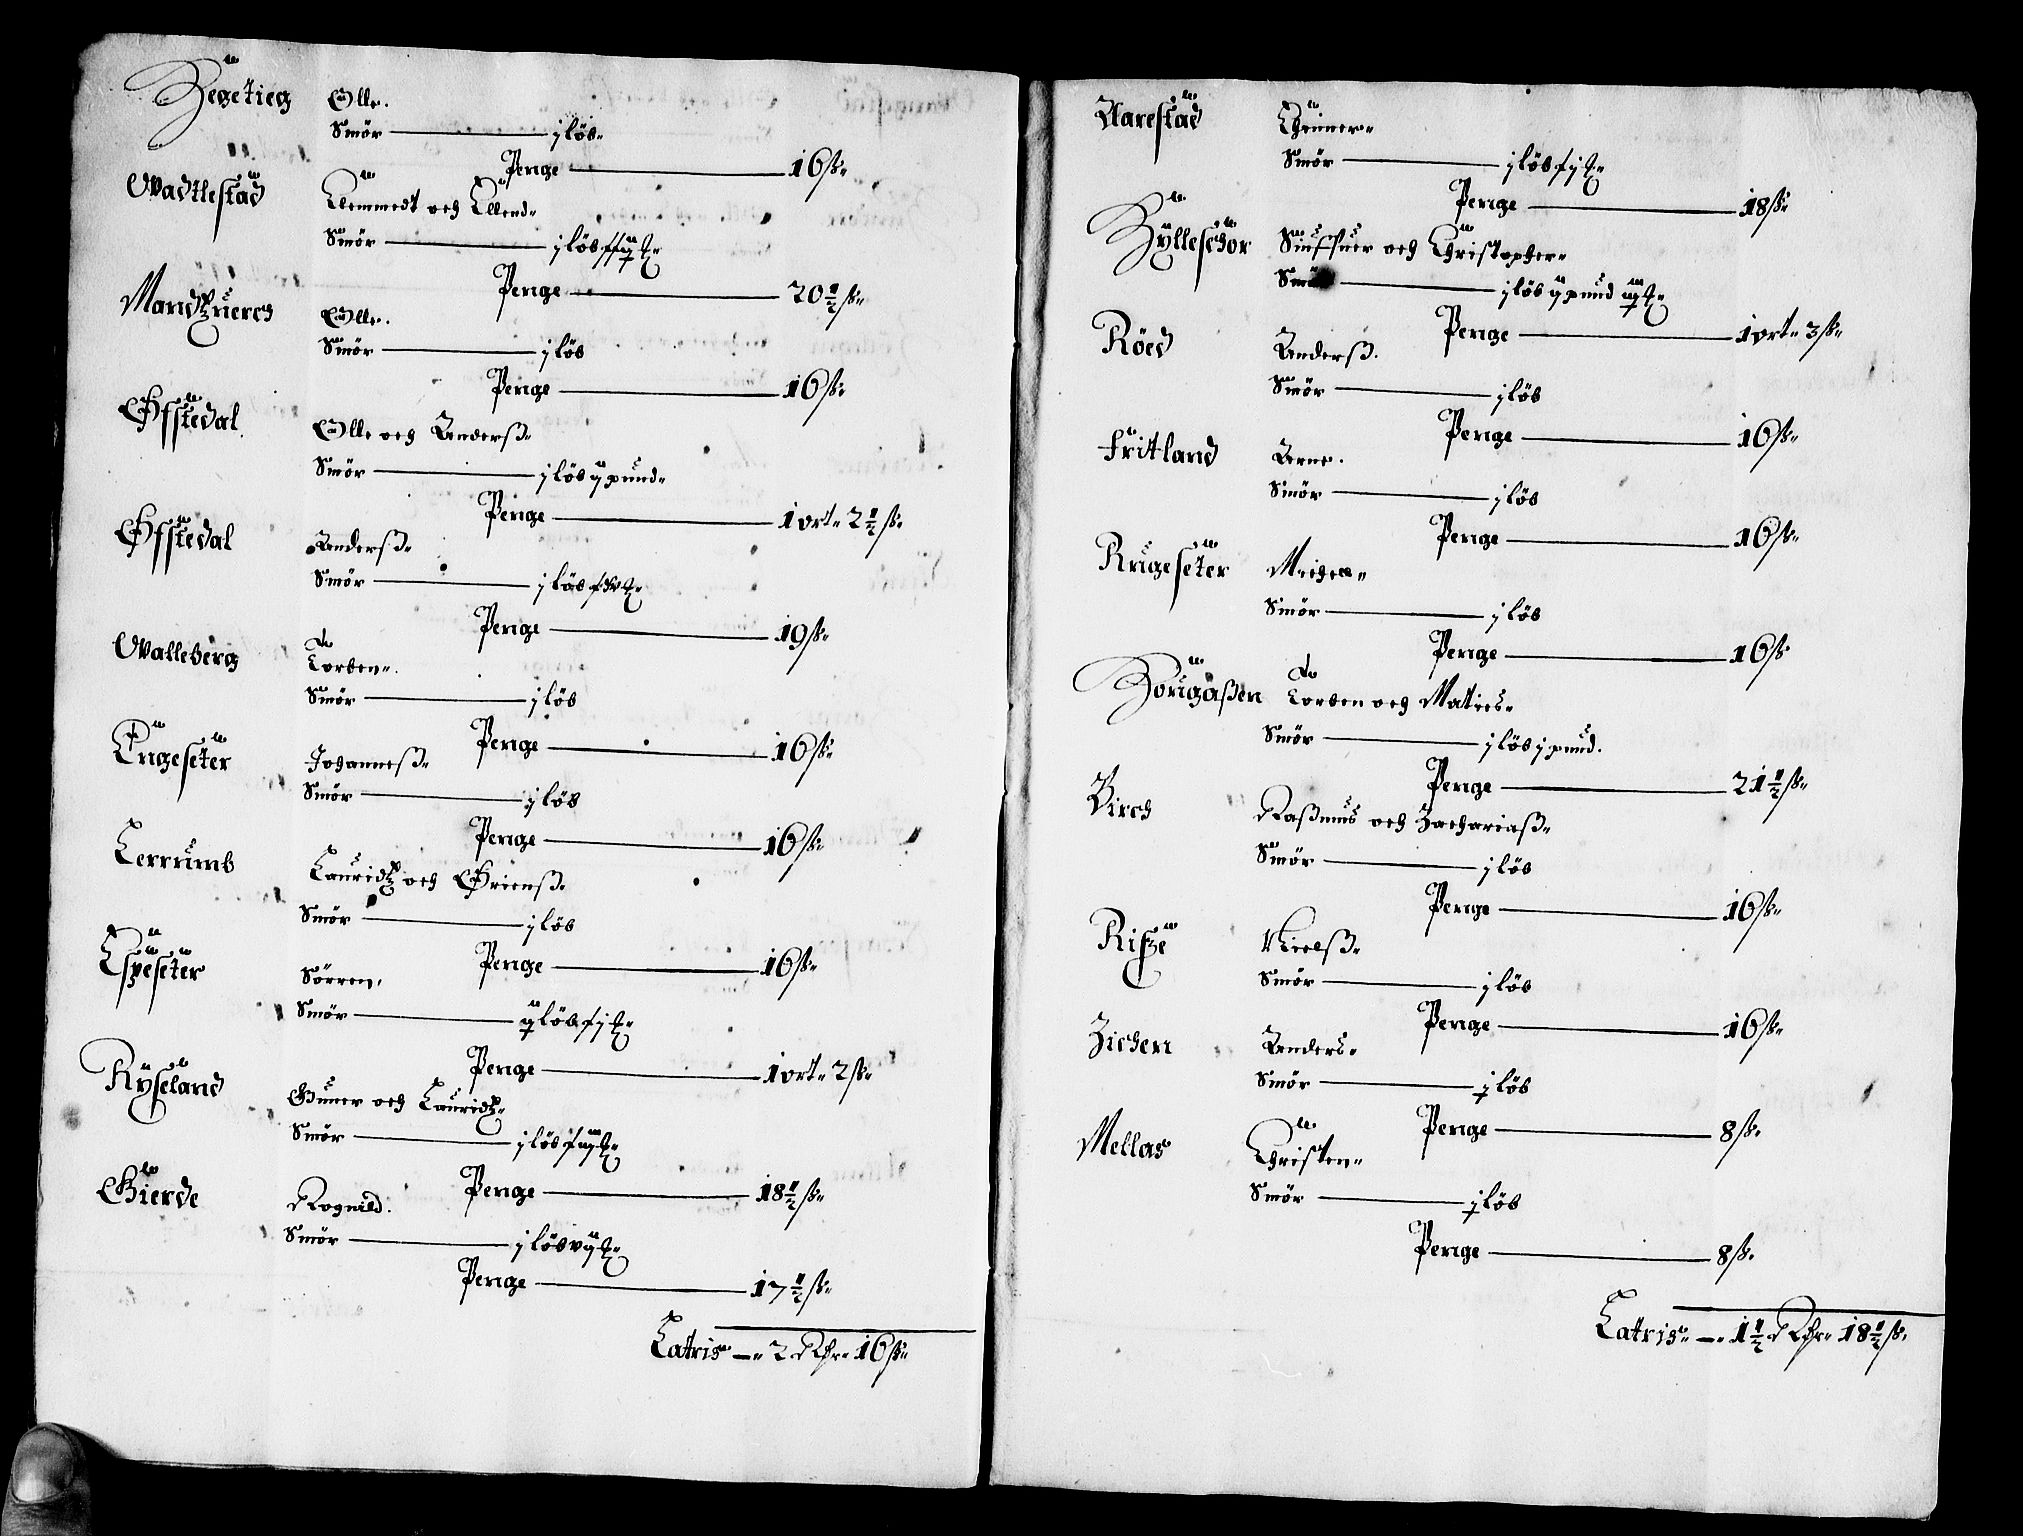 Hegetieg Olle.
Smör — j löb.
Penge — 16 ß.
Wadtlestad Clemmedt och Ellend.
Smör — j löb
Penge — 20½ ß.
Mandtzuerch Olle.
Smör — j löb
Penge — 16 ß.
Ofstedal Olle och Anderß.
Smör — j löb ij pund.
Penge — 1 ort. 2½ ß.
Ofstedal Anderß.
Smör — j löb
Penge — 19 ß.
Walleberg Torben.
Smör — j löb
Penge — 16 ß.
Engeseter Johanneß.
Smör — j löb
Penge — 16 ß.
Lerrumb Lauridtz och Brienß.
Smör — j löb
Penge — 16 ß.
Espeseter Sörren.
Smör — löb
Penge — 1 ort. 2 ß.
Ryseland Guner och Lauridtz.
Smör — j löb
Penge — 18½ ß.
Gierde Rognild.
Smör — j löb
Penge — 17½ ß.
Latris — 2 Rdr. 16 ß.
Aarestad Gunner.
Smör — j löb
Penge — 18 ß.
Hylleschor Siuffuer och Christopher.
Smör — j löb ij pund
Penge — 1 ort. 3 ß.
Röed Anderß.
Smör — j löb
Penge — 16 ß.
Fritland Arne.
Smör — j löb
Penge — 16 ß.
Rugeseter Michel.
Smör — j löb
Penge — 16 ß.
Hougaßen Torben och Maties.
Smör — j löb j pund.
Penge — 21½ ß.
Birch Raßmus och Zachariaß.
Smör — j löb
Penge — 16 ß.
Rise Nielß.
Smör — j löb
Penge — 16 ß.
Zichen Anders.
Smör — j löb
Penge — 8 ß.
Mellas Christen.
Smör — j löb
Penge — 8 ß.
Latris. — 1½ Rdr. 18½ ß.